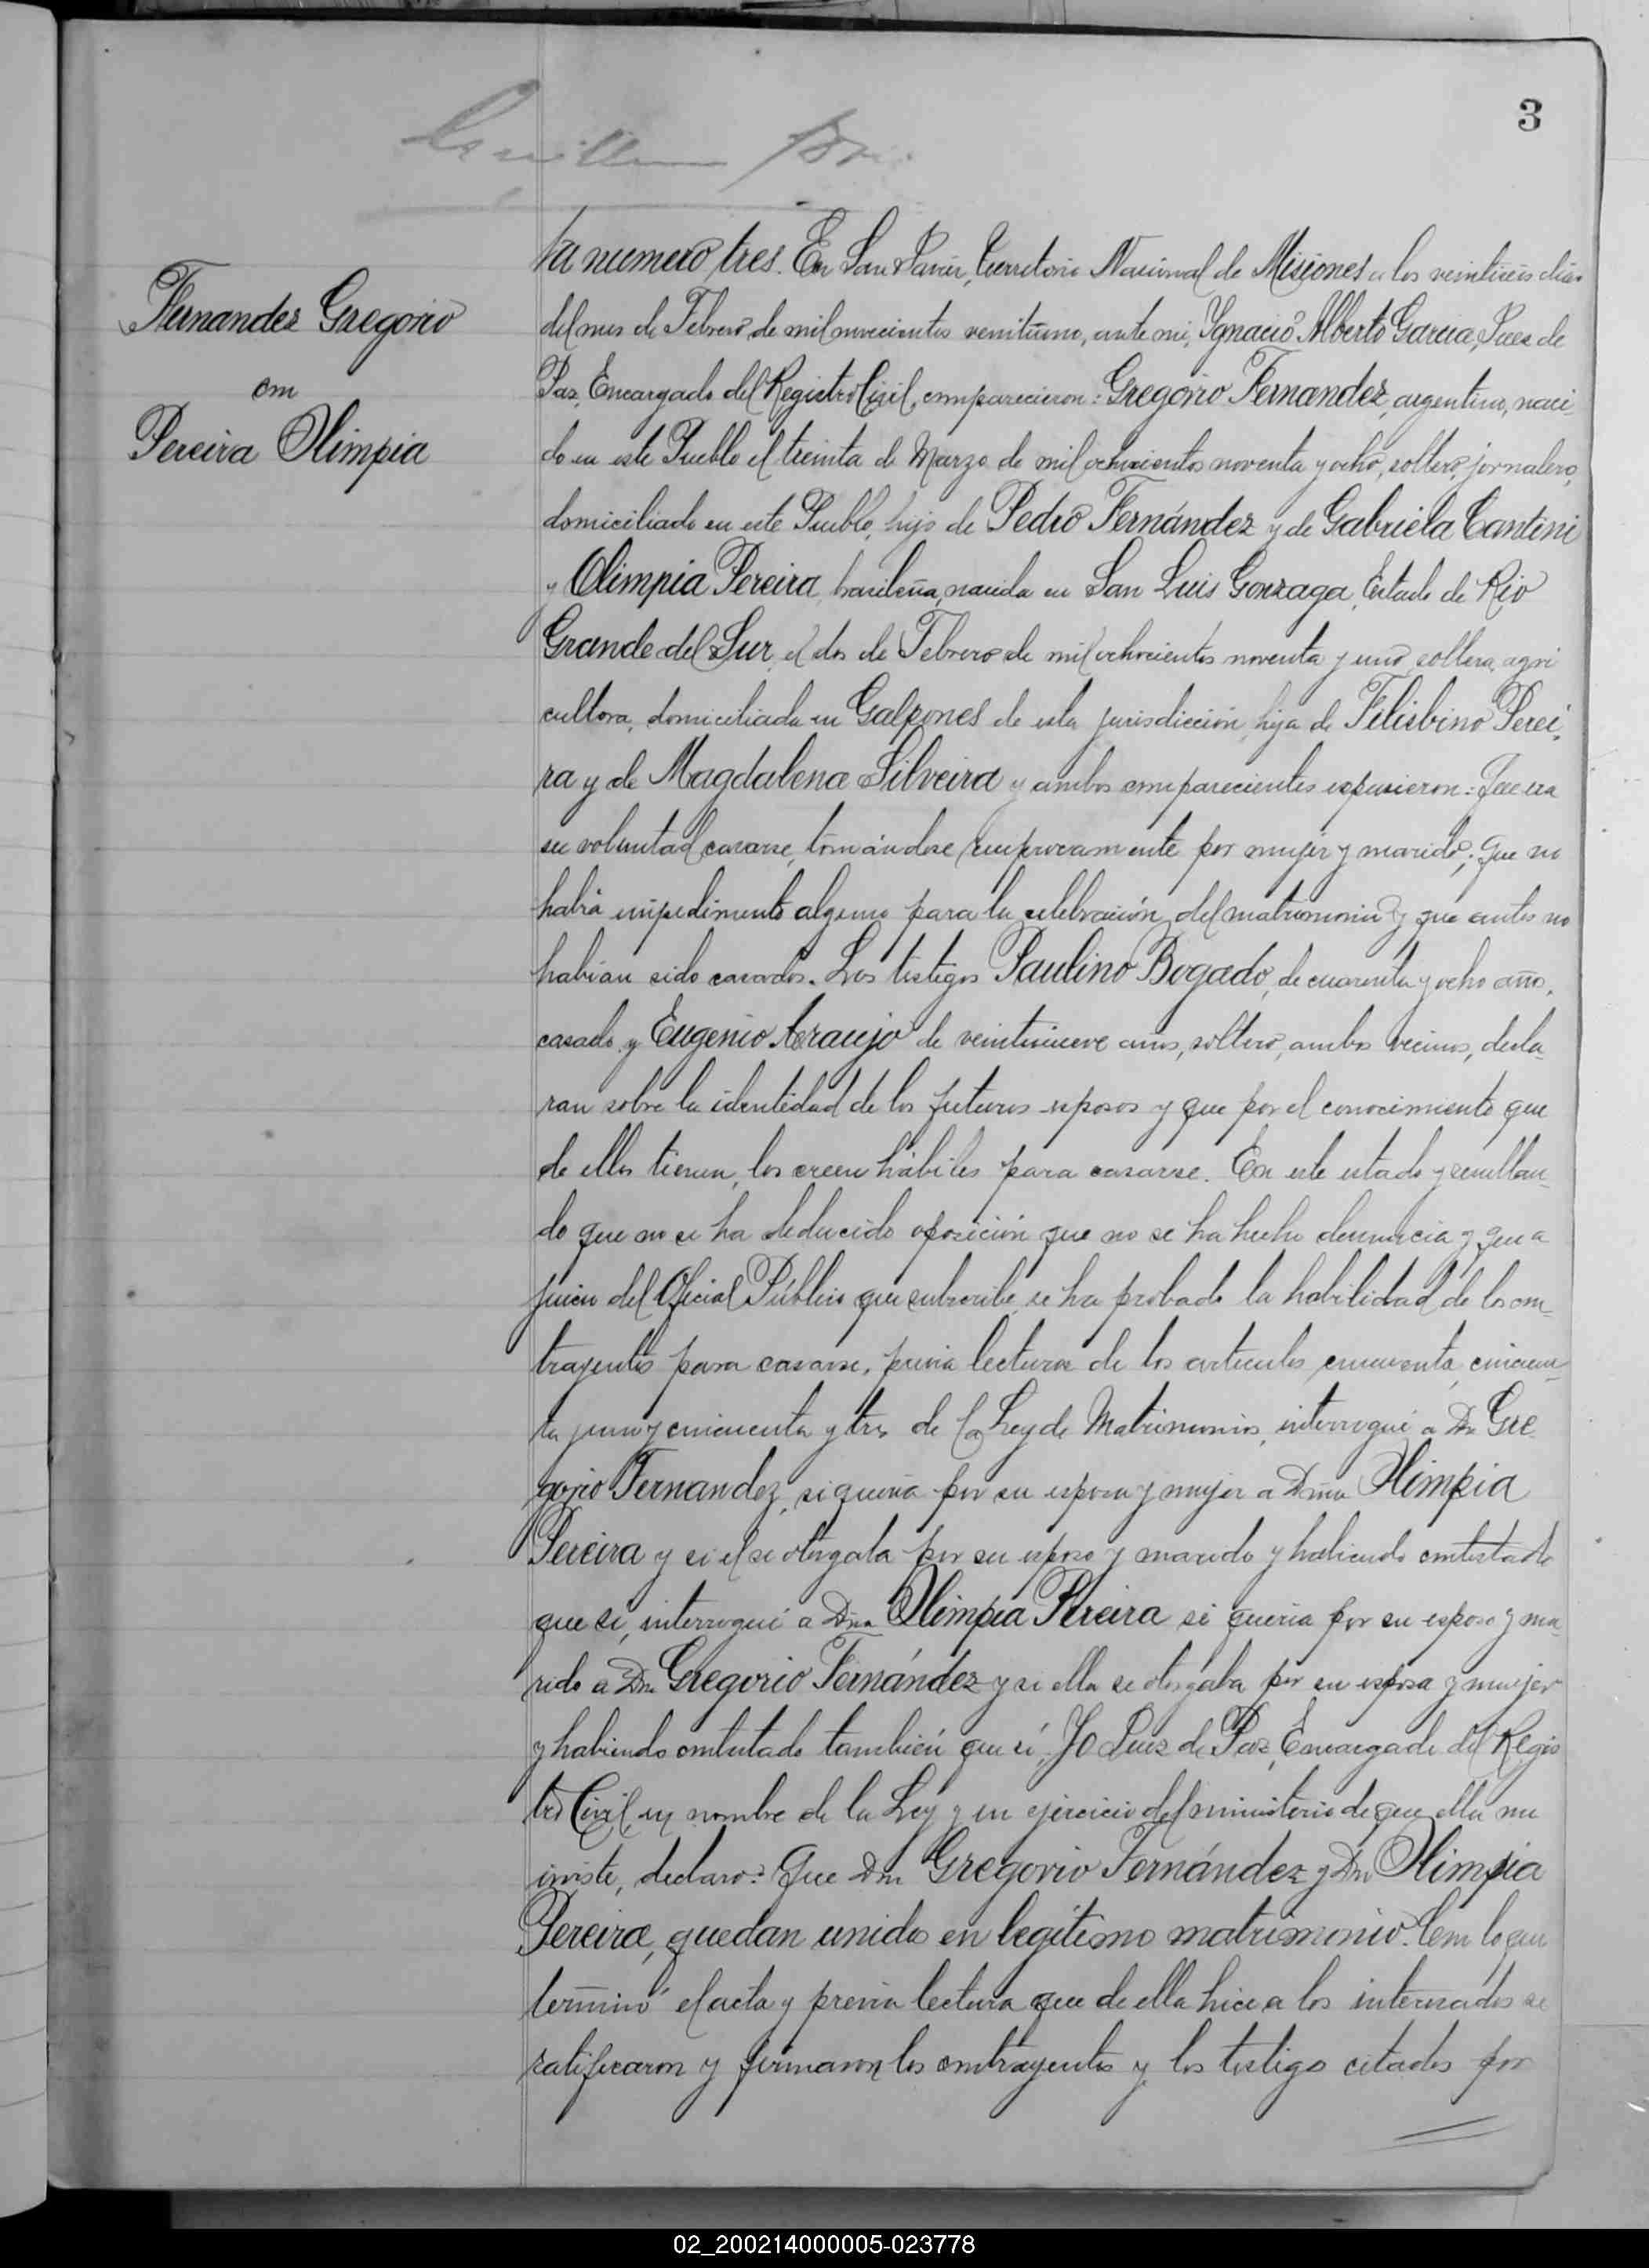 3
Fernandez Gregorio
con
Pereira Olimpia
ta numero tres. En San Javier, Territorio Nacional de Misiones a los veintiseis dias
del mes de Febrero de mil novecientos veintiuno, ante mi, Ygnacio Alberto Garcia, Juez de
Paz, Encargado del Registro Civil, comparecieron: Gregorio Fernandez, argentino, naci-
do en este Pueblo el treinta de Marzo de mil ochocientos noventa y ocho, soltero, jornalero,
domiciliado en este Pueblo, hijo de Pedro Fernández y de Gabriela Cantini
y Olimpia Pereira, brasileña, nacida en San Luis Gonzaga, Estado de Rio
Grande del Sur, el dos de Febrero de mil ochocientos noventa y uno, soltera, agri
cultora, domiciliada en Galpones de esta jurisdicción, hija de Felisbino Perei-
ra y de Magdalena Silveira y ambos comparecientes expusieron: Que era
su voluntad casarse, tomándose reciprocamente por mujer y marido; que no
habia impedimento alguno para la celebración del matrimonio y que antes no
habian sido casados. Los testigos Paulino Bogado, de cuarenta y ocho años,
casado y Eugenio Araujo de veintinueve años, soltero, ambos vecinos, decla-
ran sobre la identidad de los futuros esposos y que por el conocimiento que
de ellos tienen, los creen hábiles para casarse. En este estado y resultan-
do que no se ha deducido oposición que no se ha hecho denuncia y que a
juicio del Oficial Público que subscribe, se ha probado la habilidad de los con-
trayentes para casarse, previa lectura de los articulos cincuenta, cincuen-
ta y uno y cincuenta y tres de la Ley de Matrimonios, interrogué a Dn Gre
gorio Fernandez, si queria por su esposa y mujer a Dña Olimpia
Pereira y si el se otorgaba por su esposo y marido y habiendo contestado
que si, interrogué a Dña Olimpia Pereira si queria por su esposo y ma-
rido a Dn Gregorio Fernández y si ella se otorgaba por su esposa y mujer
y habiendo contestado también que si, Yo Juez de Paz, Encargado del Regis
tro Civil, en nombre de la Ley y en ejercicio del ministerio de que ella me
inviste, declaro: Que Dn Gregorio Fernández y Dña Olimpia
Pereira, quedan unidos en legitimo matrimonio. Con lo que
terminó el acta y previa lectura que de ella hice a los interesados se
ratificaron y firmaron los contrayentes y los testigos citados por
02_200214000005-023778